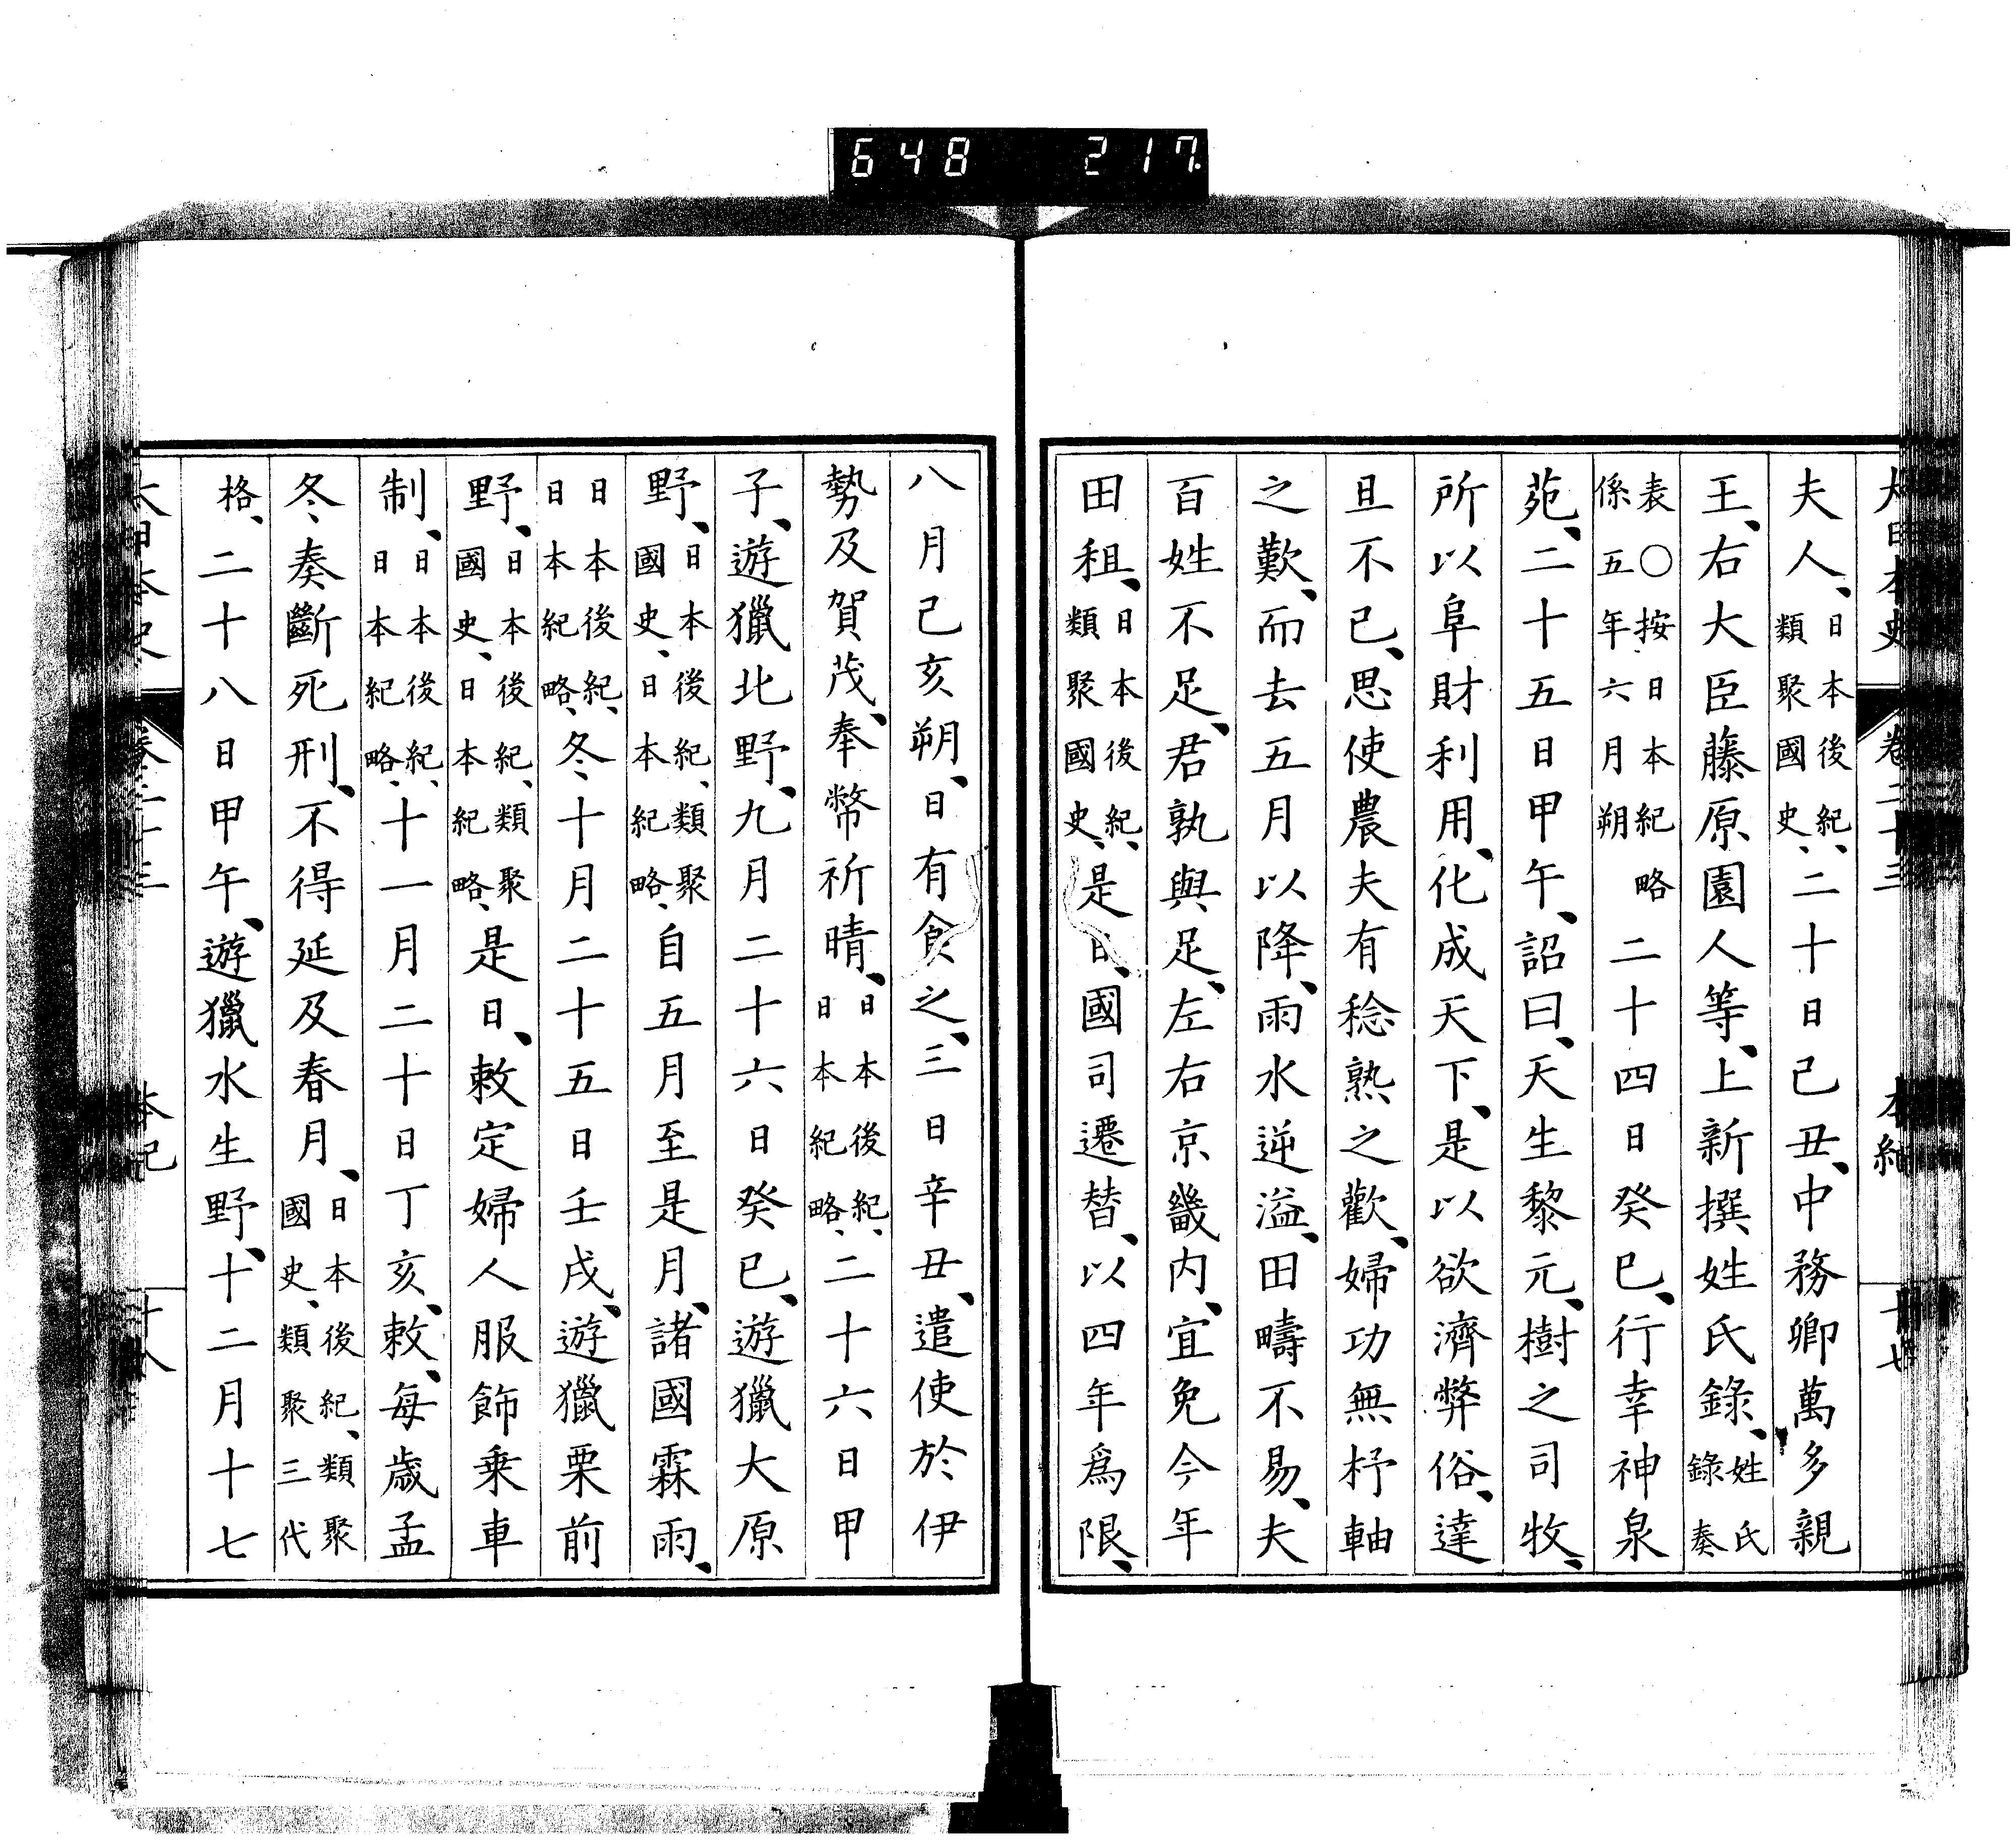 648 217
大日本史 卷二十三 本紀 十七
夫人、日本後紀、類聚國史、二十日己丑、中務卿萬多親
王、右大臣藤原園人等、上新撰姓氏錄、姓氏錄奏
表〇按日本紀略係五年六月朔二十四日癸巳、行幸神泉
苑、二十五日甲午、詔曰、天生黎元、樹之司牧、
所以阜財利用、化成天下、是以欲濟弊俗、達
旦不已、思使農夫有稔熟之歡、婦功無杼軸
之歎、而去五月以降、雨水逆溢、田疇不易、夫
百姓不足、君孰與足、左右京畿内、宜免今年
田租、日本後紀、類聚國史、是日、國司遷替、以四年爲限、
八月己亥朔、日有食之、三日辛丑、遣使於伊
勢及賀茂、奉幣祈晴、日本後紀、日本紀略、二十六日甲
子、遊獵北野、九月二十六日癸巳、遊獵大原
野、日本後紀、類聚國史、日本紀略、自五月至是月、諸國霖雨、
日本後紀、日本紀略、冬十月二十五日壬戌、遊獵栗前
野、日本後紀、類聚國史、日本紀略、是日、敕定婦人服飾乗車
制、日本後紀、日本紀略、十一月二十日丁亥、敕、每歲孟
冬、奏斷死刑、不得延及春月、日本後紀、類聚國史、類聚三代
格、二十八日甲午、遊獵水生野、十二月十七
大日本史 卷二十三 本紀 十八